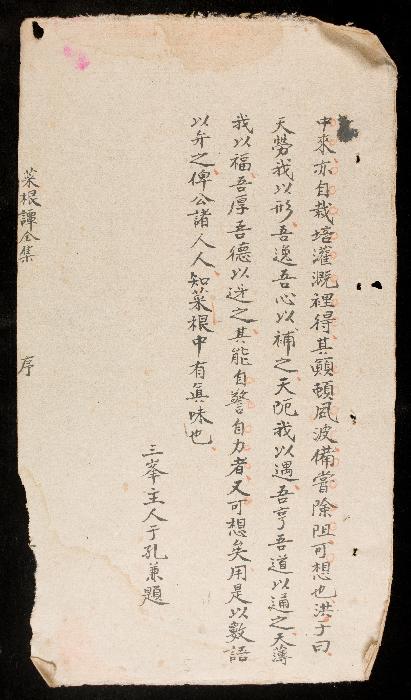 中來亦自栽培灌溉裡得其顛頓風波備嘗除阻可想也洪子曰
天勞我以形吾逸吾心以補之天阨我以遇吾亨吾道以通之天薄
我以福吾厚吾德以迓之其能自警自力者又可想矣用是以數語
以弁之俾公諸人人知菜根中有真味也
三峯主人于孔兼題
菜根譚全集
序